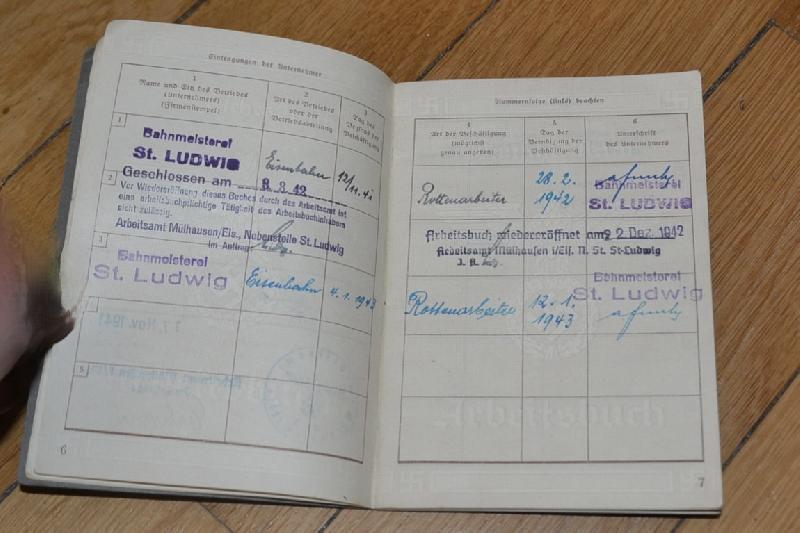 Eintragungen des Unternehmer
1
Name und Sitz des Betriebes
(Unternehmers)
(Firmenstempel)
2
Art des Betriebes
oder der
Betriebsabteilung
3
Tag des
Beginns der
Beschäftigung
1
Bahnmeisterei
St. LUDWIG
Eisenbahn
12/11.41
2
Geschlossen am 8. 3. 42
Vor Wiedereröffnung dieses Buches durch das Arbeitsamt ist
eine arbeitsbuchpflichtige Tätigkeit des Arbeitsbuchinhabers
nicht zulässig.
Arbeitsamt Mülhausen/Els., Nebenstelle St. Ludwig
Im Auftrag:
3
Bahnmeisterei
St. Ludwig
Eisenbahn
4.1.1943
5
6
Nummernfolge (links) beachten
4
Art der Beschäftigung
(möglichst
genau angeben)
5
Tag der
Beendigung der
Beschäftigung
6
Unterschrift
des Unternehmers
Rottenarbeiter
28.2.
1942
Bahnmeisterei
St. LUDWIG
Arbeitsbuch wiedereröffnet am 22. Dez. 1942
Arbeitsamt Mülhausen i/Els. N. St. St-Ludwig
J. A.
Rottenarbeiter
12.1.
1943
Bahnmeisterei
St. Ludwig
Arbeitsbuch
7